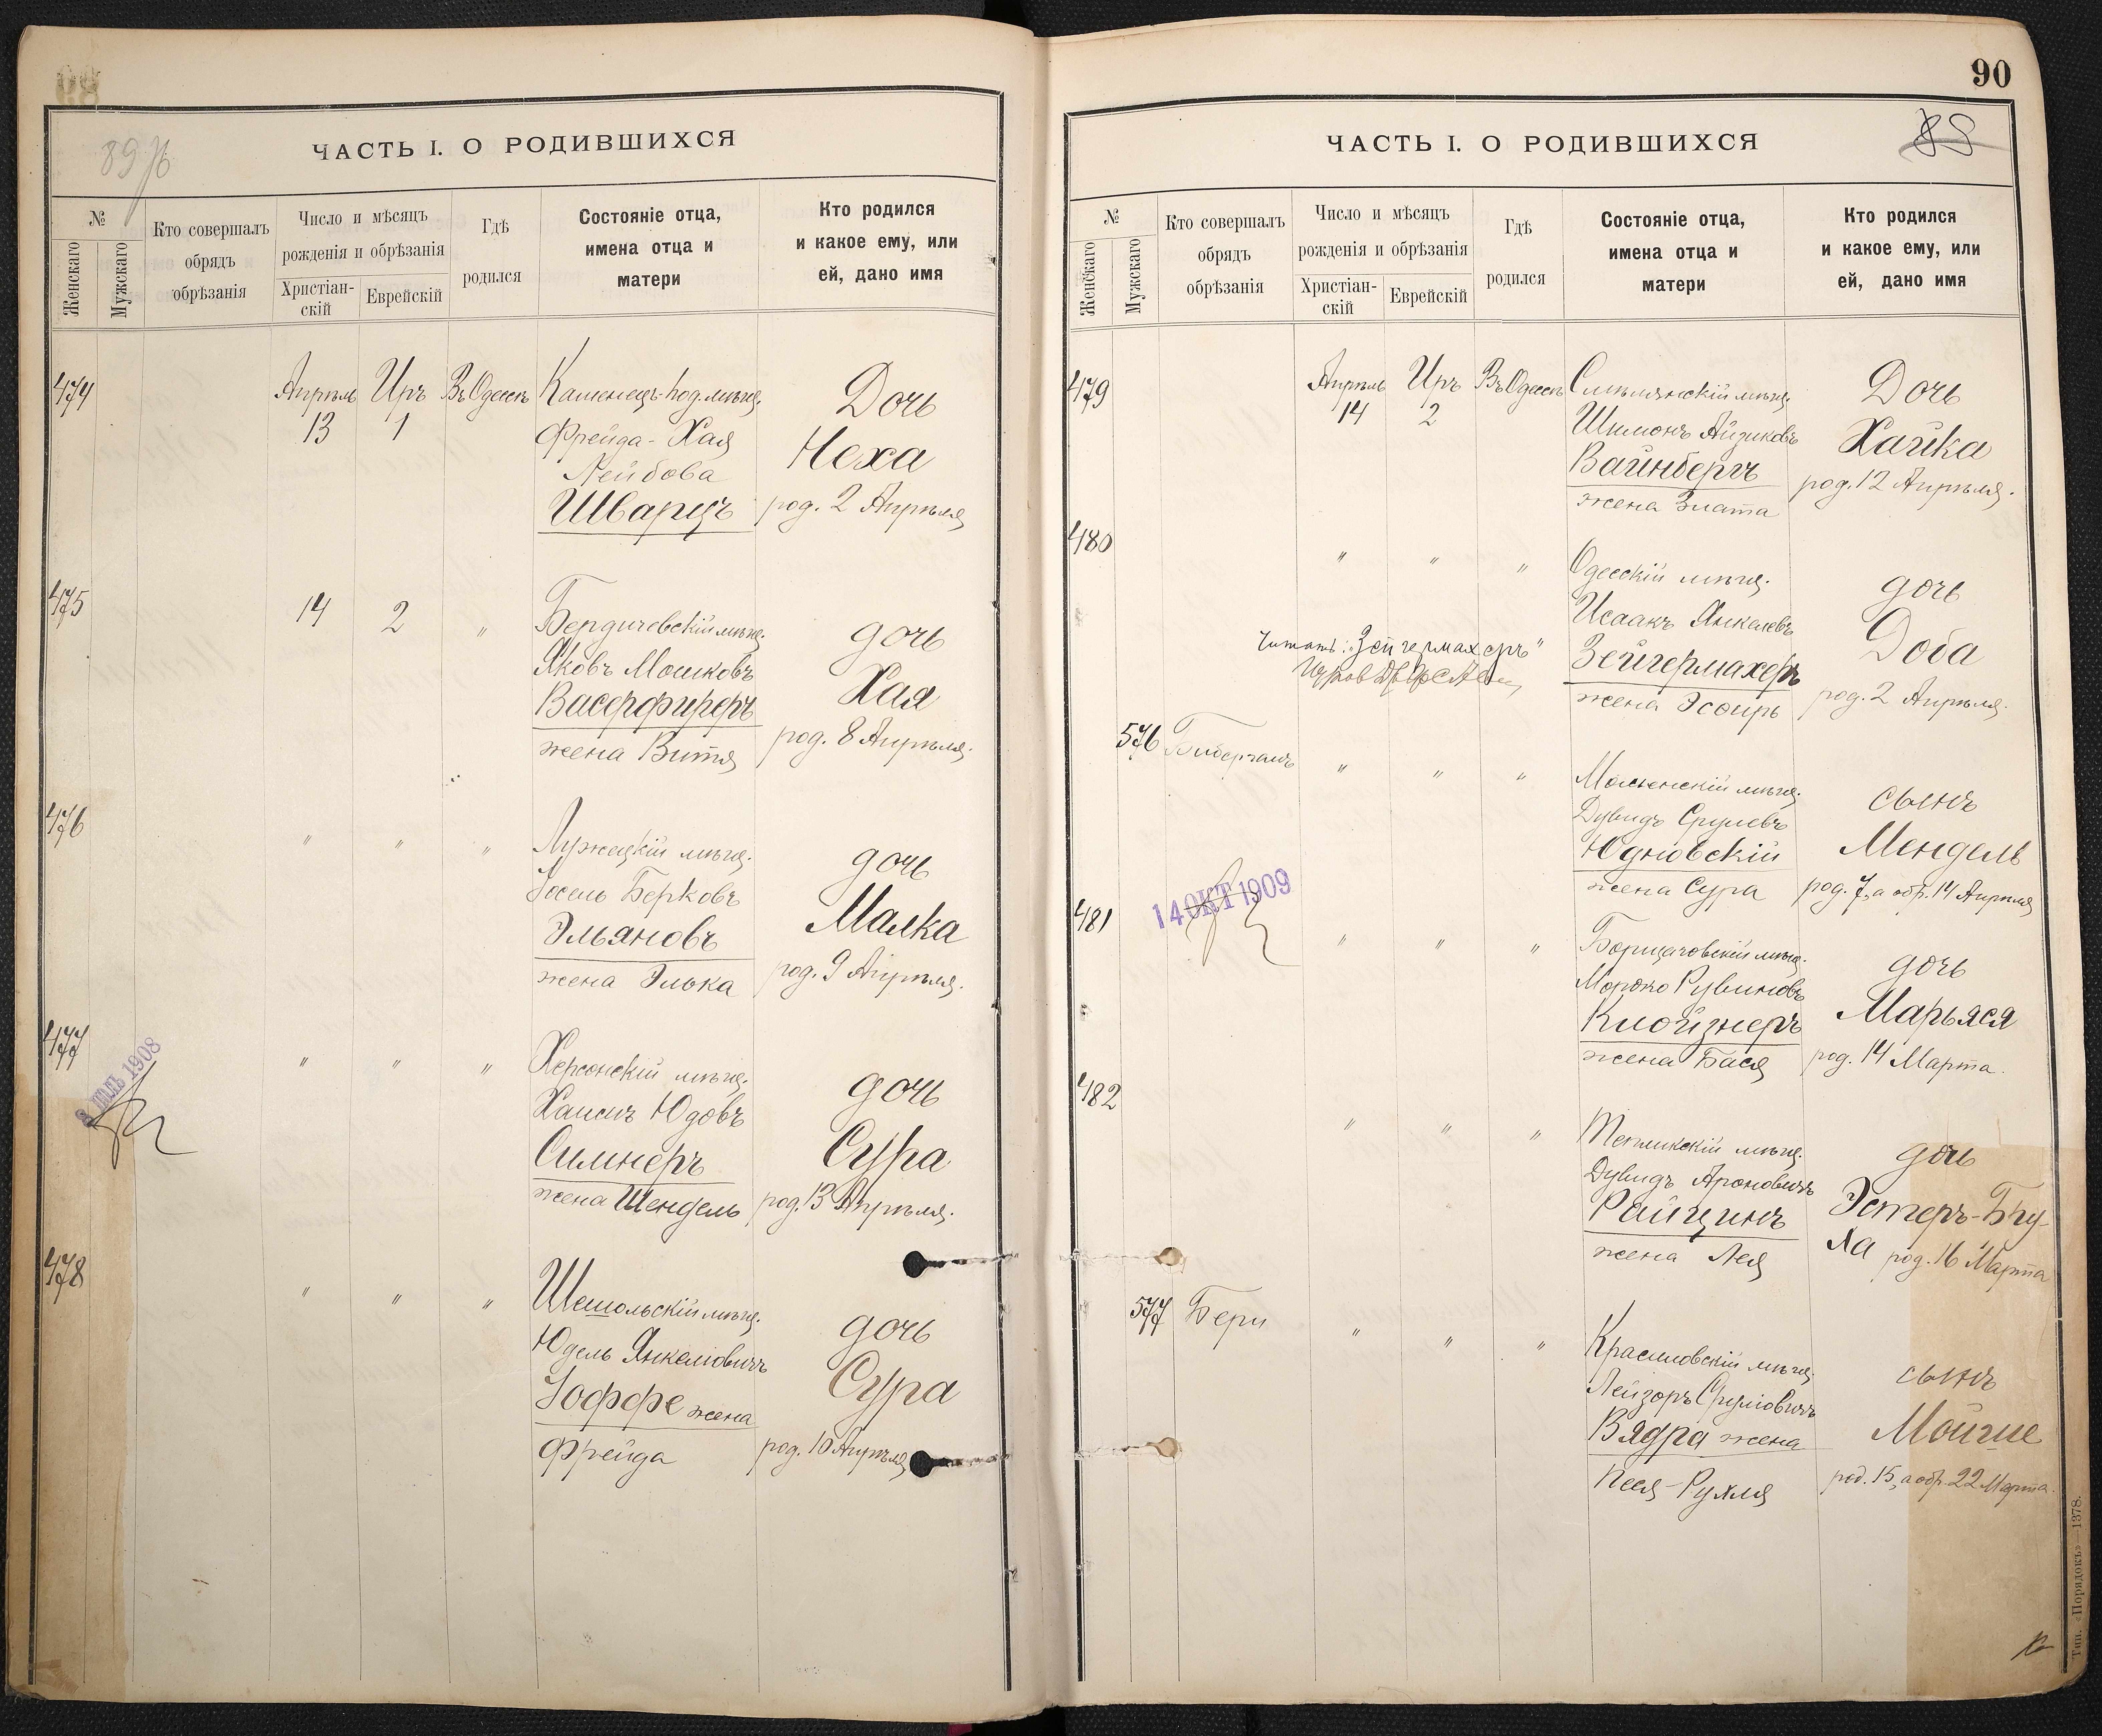 89 об
ЧАСТЬ I. О РОДИВШИХСЯ
№
Женскаго
Мужскаго
Кто совершалъ
обрядъ
обрѣзанія
Число и мѣсяцъ
рожденія и обрѣзанія
Христіан-
скій
Еврейскій
Гдѣ
родился
Состояніе отца,
имена отца и
матери
Кто родился
и какое ему, или
ей, дано имя
474
Апрѣль Иръ Въ Одессѣ
13 1
Каменецъ-под. мѣщ.
Фрейда-Хая
Лейбова
Шварцъ
Дочь
Неха
род. 2 Апрѣля
475
14 2 "
Бердичевскій мѣщ.
Яковъ Мошковъ
Васерфиреръ
жена Витя
дочь
Хая
род. 8 Апрѣля.
476
" " "
Лужецкій мѣщ.
Іосель Берковъ
Эльяновъ
жена Элька
дочь
Малка
род. 9 Апрѣля.
477
8 ІЮЛЬ 1908
" " "
Херсонскій мѣщ.
Хаимъ Юдовъ
Силнеръ
жена Шендель
дочь
Сура
род. 13 Апрѣля.
478
" " "
Шешольскій мѣщ.
Юдель Янкеліовичъ
Іоффе жена
Фрейда
дочь
Сура
род. 10 Апрѣля
90
88
ЧАСТЬ I. О РОДИВШИХСЯ
№
Женскаго
Мужскаго
Кто совершалъ
обрядъ
обрѣзанія
Число и мѣсяцъ
рожденія и обрѣзанія
Христіан-
скій
Еврейскій
Гдѣ
родился
Состояніе отца,
имена отца и
матери
Кто родился
и какое ему, или
ей, дано имя
479
Апрѣль Иръ Въ Одессѣ
14 2
Смѣлянскій мѣщ.
Шимонъ Айзиковъ
Вайнбергъ
жена Злата
Дочь
Хайка
род. 12 Апрѣля.
480
" " "
Читать: "Зейгермахеръ"
Одесскій мѣщ.
Исаакъ Янкелевъ
Зейгермахеръ
жена Эсѳирь
дочь
Доба
род. 2 Апрѣля.
576
Бибергалъ
" " "
мѣщ.
Дувидъ Срулевъ
Юдновскій
жена Сура
сынъ
Мендель
род. 7, а обр. 14 Апрѣля
481
14 ОКТ 1909
" " "
Борщаговскій мѣщ.
Мордко Рувиновъ
Клойзнеръ
жена Бася
дочь
Марьяся
род. 14 Марта.
482
" " "
Тепликскій мѣщ.
Дувидъ Ароновичъ
Райцинъ
жена Лея
дочь
Эстеръ-Бру-
ла род. 16 Марта
577
Бери
" " "
Красиловскій мѣщ.
Лейзоръ Сруліовичъ
Вядра жена
Песя-Рухля
сынъ
Мойше
род. 15, а обр. 22 Марта.
Тип. «Порядокъ»—1378.